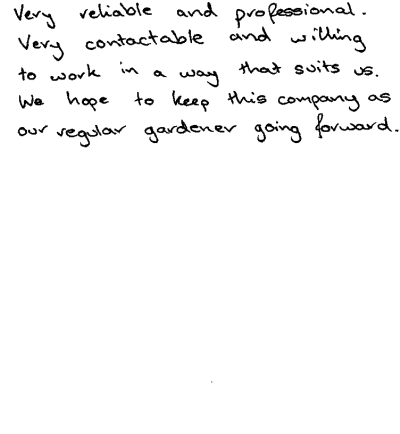 Very reliable and professional.
Very contactable and willing
to work in a way that suits us.
We hope to keep this company as
our regular gardener going forward.